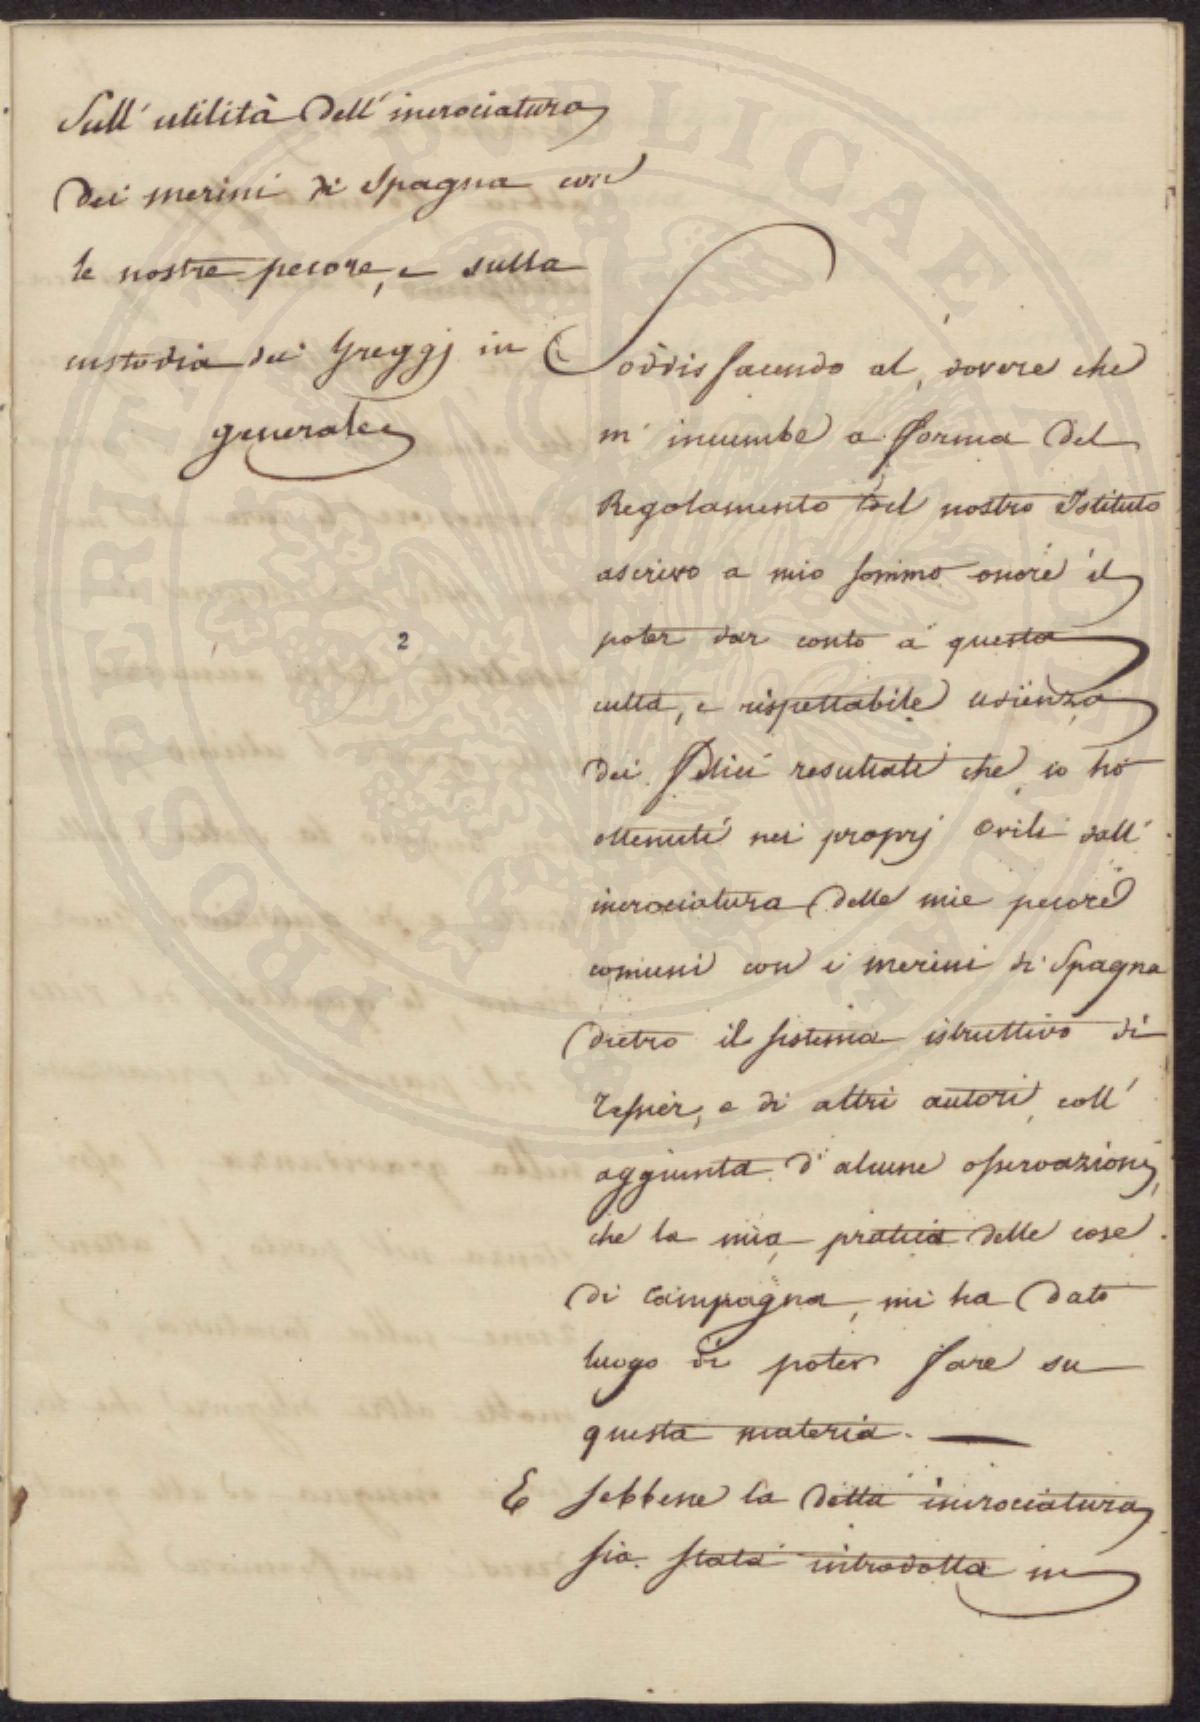 Sull' utilità dell' incrociatura
dei merini di Spagna con
le nostre pecore, e sulla
custodia dei Greggj in
generale
2
Soddisfacendo al dovere che
m' incumbe a forma del
Regolamento del nostro Istituto
ascrivo a mio sommo onore il
poter dar conto a questa
culta, e rispettabile udienza
dei felici resultati che io hò
ottenuti nei proprj Ovili dall'
incrociatura delle mie pecore
comuni con i merini di Spagna
dietro il sistema istruttivo di
Tessier, e di altri autori coll'
aggiunta d' alcune osservazioni,
che la mia pratica delle cose
di Campagna, mi ha dato
luogo di poter fare su
questa materia. —
E sebbene la detta incrociatura
sia stata introdotta in
PROSPERITATI PUBLICAE AUGENDAE